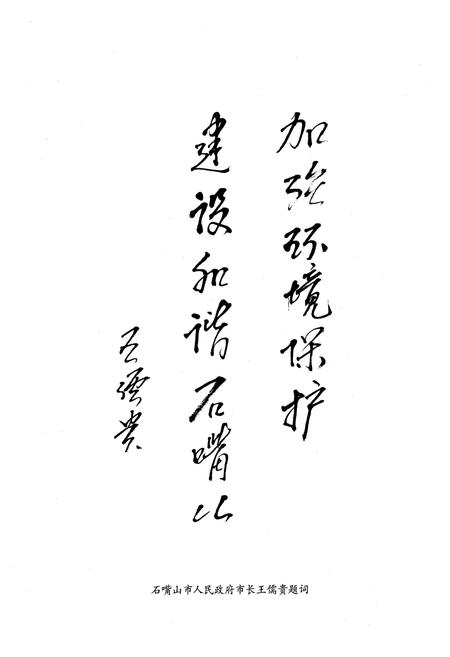 加强环境保护
建设和谐石嘴山
王儒贵
石嘴山市人民政府市长王儒贵题词